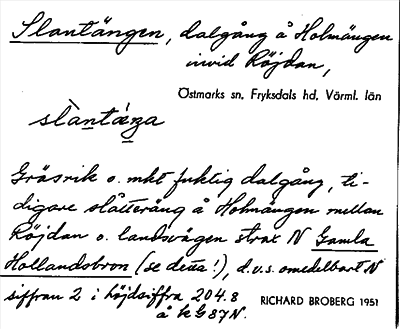 Slantängen, dalgång å Holmängen
invid Röjdan,
Östmarks sn, Fryksdals hd, Värml. län
Gräsrik o. mkt fuktig dalgång, ti-
digare slåtteräng å Holmängen mellan
Röjdan o. landsvägen strax N Gamla
Hollandsbron (se dessa!), d.v.s. omedelbart N
siffran 2 i höjdsiffra 204.8
å kG 87 N.
RICHARD BROBERG 1951